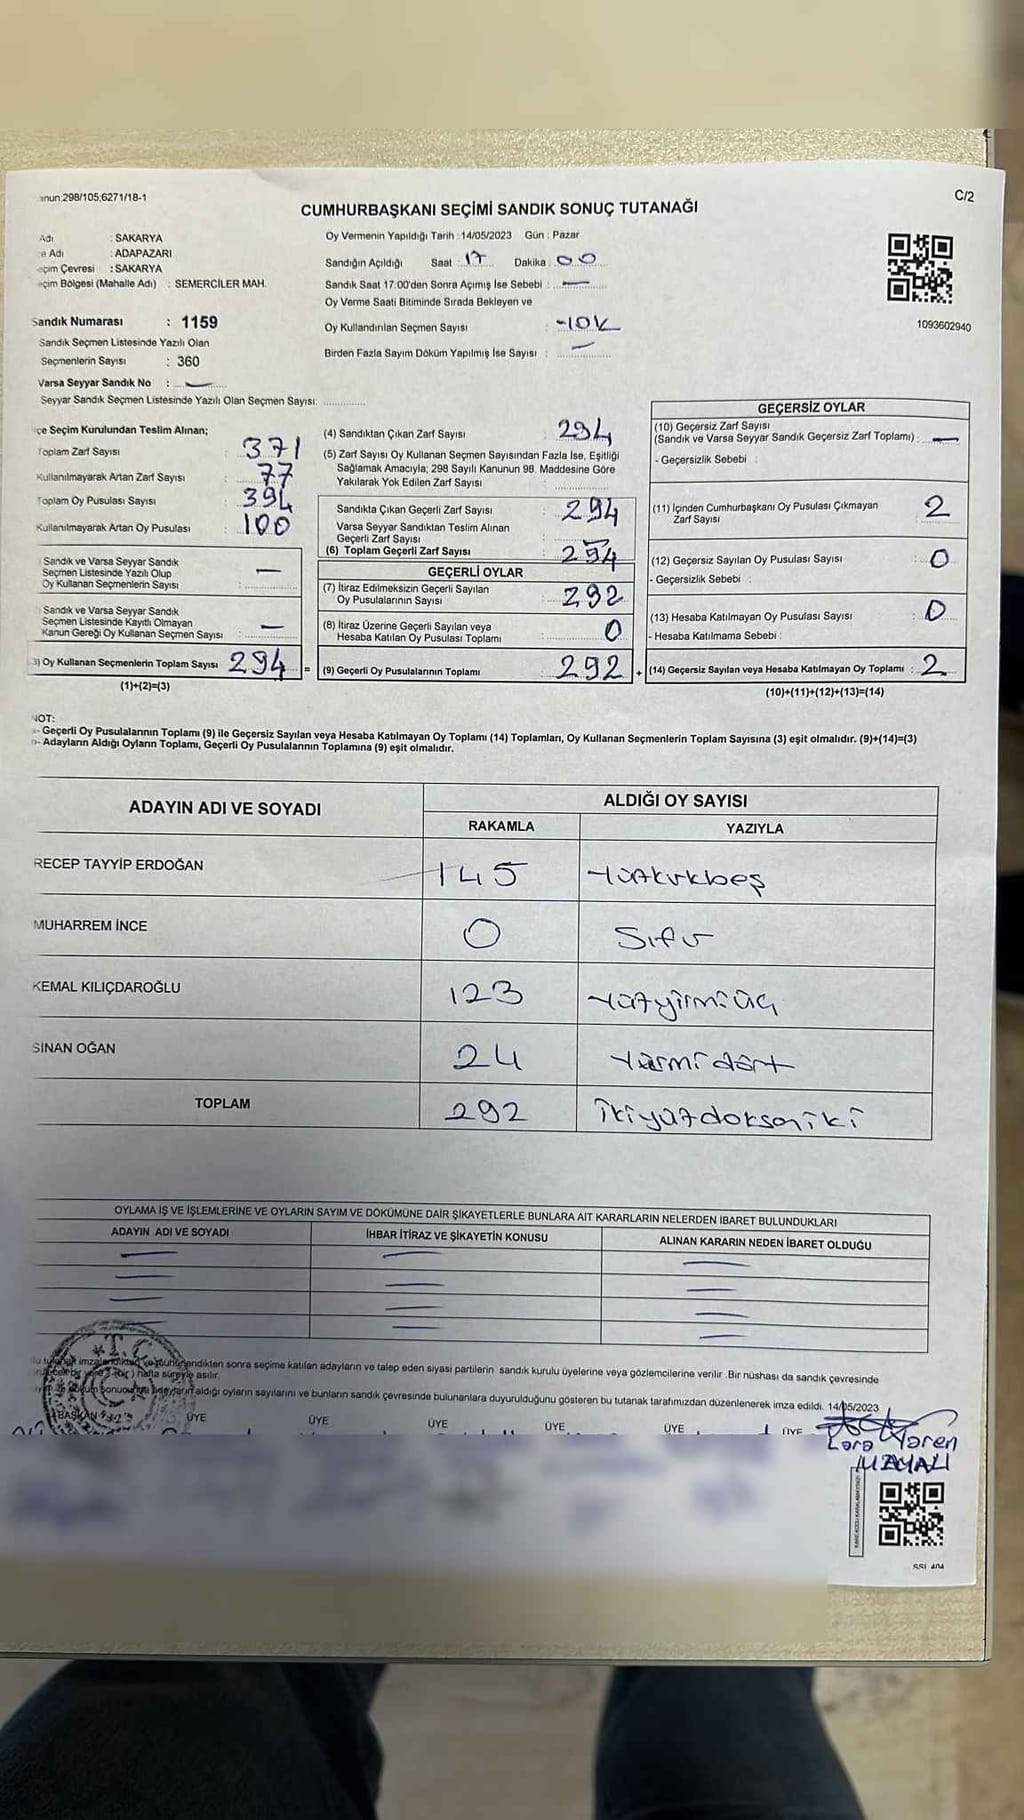 nun.298/105;6271/18-1
C/2
CUMHURBAŞKANI SEÇİMİ SANDIK SONUÇ TUTANAĞI
Adı : SAKARYA
e Adı : ADAPAZARI
eçim Çevresi : SAKARYA
eçim Bölgesi (Mahalle Adı) : SEMERCİLER MAH.
Sandık Numarası : 1159
Sandık Seçmen Listesinde Yazılı Olan
Seçmenlerin Sayısı : 360
Varsa Seyyar Sandık No : —
Seyyar Sandık Seçmen Listesinde Yazılı Olan Seçmen Sayısı:
Oy Vermenin Yapıldığı Tarih : 14/05/2023 Gün : Pazar
Sandığın Açıldığı Saat : 17 Dakika : 00
Sandık Saat 17.00'den Sonra Açımış İse Sebebi : —
Oy Verme Saati Bitiminde Sırada Bekleyen ve
Oy Kullandırılan Seçmen Sayısı : -10K
Birden Fazla Sayım Döküm Yapılmış İse Sayısı : —
1093602940
çe Seçim Kurulundan Teslim Alınan;
Toplam Zarf Sayısı : 371
Kullanılmayarak Artan Zarf Sayısı : 77
Toplam Oy Pusulası Sayısı : 394
Kullanılmayarak Artan Oy Pusulası : 100
Sandık ve Varsa Seyyar Sandık
Seçmen Listesinde Yazılı Olup
Oy Kullanan Seçmenlerin Sayısı —
Sandık ve Varsa Seyyar Sandık
Seçmen Listesinde Kayıtlı Olmayan
Kanun Gereği Oy Kullanan Seçmen Sayısı : —
3) Oy Kullanan Seçmenlerin Toplam Sayısı 294 =
(1)+(2)=(3)
(4) Sandıktan Çıkan Zarf Sayısı : 294
(5) Zarf Sayısı Oy Kullanan Seçmen Sayısından Fazla İse, Eşitliği
Sağlamak Amacıyla; 298 Sayılı Kanunun 98. Maddesine Göre
Yakılarak Yok Edilen Zarf Sayısı :
Sandıkta Çıkan Geçerli Zarf Sayısı : 294
Varsa Seyyar Sandıktan Teslim Alınan
Geçerli Zarf Sayısı : —
(6) Toplam Geçerli Zarf Sayısı : 294
GEÇERLİ OYLAR
(7) İtiraz Edilmeksizin Geçerli Sayılan
Oy Pusulalarının Sayısı : 292
(8) İtiraz Üzerine Geçerli Sayılan veya
Hesaba Katılan Oy Pusulası Toplamı : 0
(9) Geçerli Oy Pusulalarının Toplamı : 292 +
GEÇERSİZ OYLAR
(10) Geçersiz Zarf Sayısı
(Sandık ve Varsa Seyyar Sandık Geçersiz Zarf Toplamı) : —
- Geçersizlik Sebebi :
(11) İçinden Cumhurbaşkanı Oy Pusulası Çıkmayan
Zarf Sayısı : 2
(12) Geçersiz Sayılan Oy Pusulası Sayısı : 0
- Geçersizlik Sebebi :
(13) Hesaba Katılmayan Oy Pusulası Sayısı : 0
- Hesaba Katılmama Sebebi :
(14) Geçersiz Sayılan veya Hesaba Katılmayan Oy Toplamı : 2
(10)+(11)+(12)+(13)=(14)
NOT:
- Geçerli Oy Pusulalarının Toplamı (9) ile Geçersiz Sayılan veya Hesaba Katılmayan Oy Toplamı (14) Toplamları, Oy Kullanan Seçmenlerin Toplam Sayısına (3) eşit olmalıdır. (9)+(14)=(3)
- Adayların Aldığı Oyların Toplamı, Geçerli Oy Pusulalarının Toplamına (9) eşit olmalıdır.
ADAYIN ADI VE SOYADI ALDIĞI OY SAYISI
RAKAMLA YAZIYLA
RECEP TAYYİP ERDOĞAN 145 Yüzkırkbeş
MUHARREM İNCE 0 Sıfır
KEMAL KILIÇDAROĞLU 123 Yüzyirmiüç
SİNAN OĞAN 24 Yirmi dört
TOPLAM 292 İkiyüzdoksaniki
OYLAMA İŞ VE İŞLEMLERİNE VE OYLARIN SAYIM VE DÖKÜMÜNE DAİR ŞİKAYETLERLE BUNLARA AİT KARARLARIN NELERDEN İBARET BULUNDUKLARI
ADAYIN ADI VE SOYADI İHBAR İTİRAZ VE ŞİKAYETİN KONUSU ALINAN KARARIN NEDEN İBARET OLDUĞU
T.C.
sonra seçime katılan adayların ve talep eden siyasi partilerin sandık kurulu üyelerine veya gözlemcilerine verilir .Bir nüshası da sandık çevresinde
hafta süreyle asılır.
adayların aldığı oyların sayılarını ve bunların sandık çevresinde bulunanlara duyurulduğunu gösteren bu tutanak tarafımızdan düzenlenerek imza edildi. 14/05/2023
BAŞKAN ÜYE ÜYE ÜYE ÜYE ÜYE ÜYE